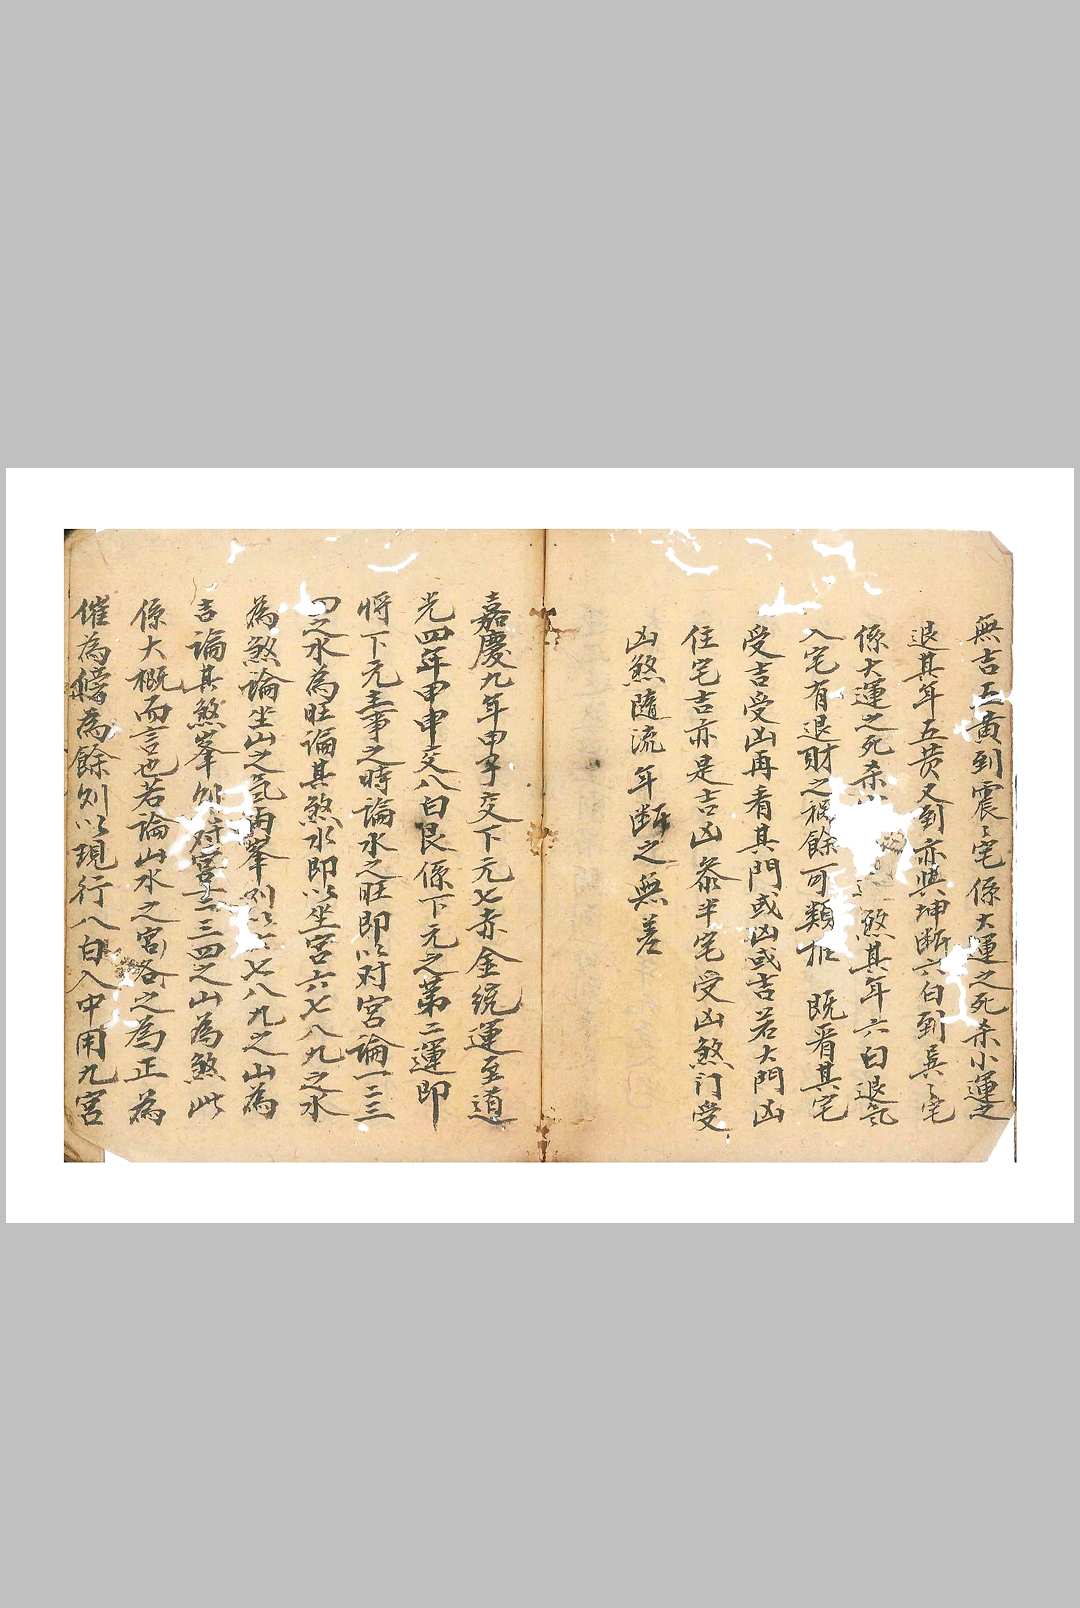 無吉五黃到震〻宅係大運之死杀小運之
退其年五黃又到亦與坤斷六白到巽〻宅
係大運之死杀煞其年六白退氣
入宅有退財之禍餘可類推 既看其宅
受吉受凶再看其門或凶或吉若大門凶
住宅吉亦是吉凶叅半宅受凶煞門受
凶煞隨流年斷之無差
嘉慶九年甲子交下元七赤金統運至道
光四年甲申交八白艮係下元之第二運即
將下元主事之時論水之旺即以对宮論一二三
四之水為旺論其煞水即以坐宮六七八九之水
為煞論坐山之氣兩峯則以六七八九之山為
吉論其煞峯則对宮一二三四之山為煞此
係大概而言也若論山水之宮各之為正為
催為為餘則以現行八白入中用九宮